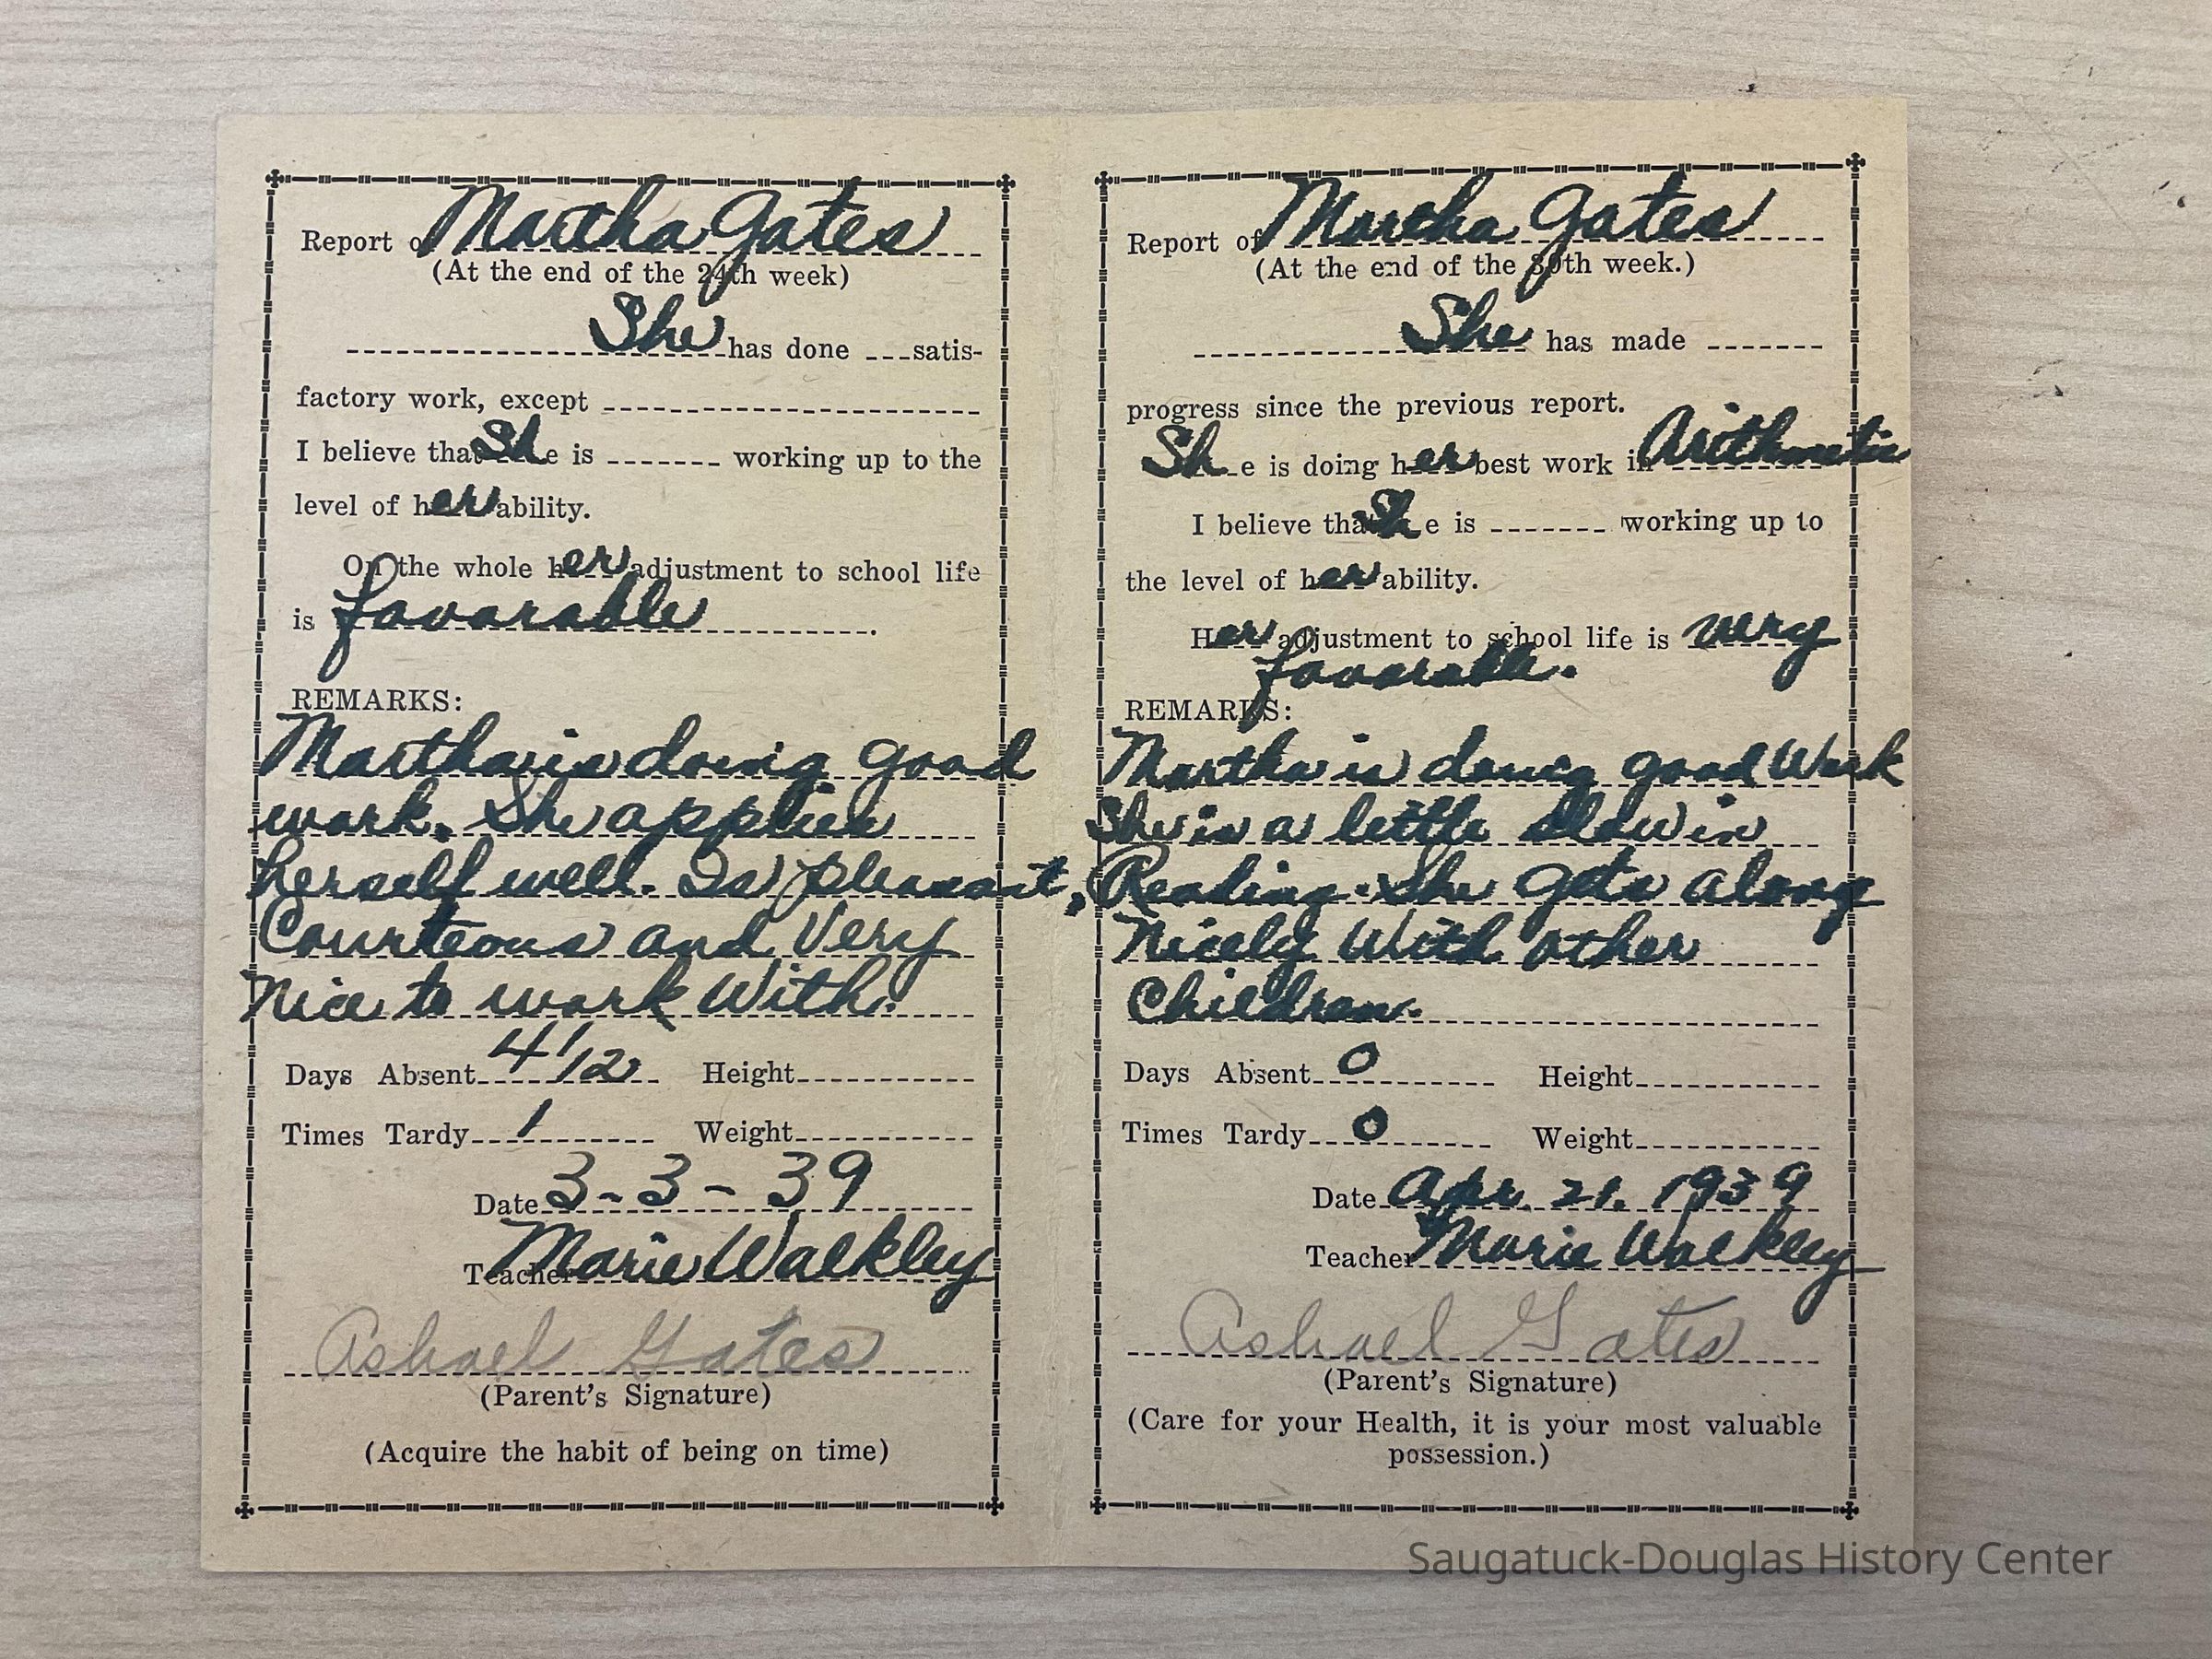 Report of Martha Gates
(At the end of the 24th week)
She has done satis-
factory work, except
I believe that She is working up to the
level of her ability.
On the whole her adjustment to school life
is favorable.
REMARKS:
Martha is doing good
work. She applies
herself well. Is pleasant,
Courteous and Very
Nice to work With.
Days Absent 4 1/2 Height
Times Tardy 1 Weight
Date 3-3-39
Teacher Marie Walkley
Ashael Gates
(Parent's Signature)
(Acquire the habit of being on time)
Report of Martha Gates
(At the end of the 30th week.)
She has made
progress since the previous report.
She is doing her best work in Arithmetic
I believe that She is working up to
the level of her ability.
Her adjustment to school life is very
favorable.
REMARKS:
Martha is doing good Work
She is a little slow in
Reading. She gets along
Nicely With other
Children.
Days Absent 0 Height
Times Tardy 0 Weight
Date Apr. 21. 1939
Teacher Marie Walkley
Ashael Gates
(Parent's Signature)
(Care for your Health, it is your most valuable
possession.)
Saugatuck-Douglas History Center